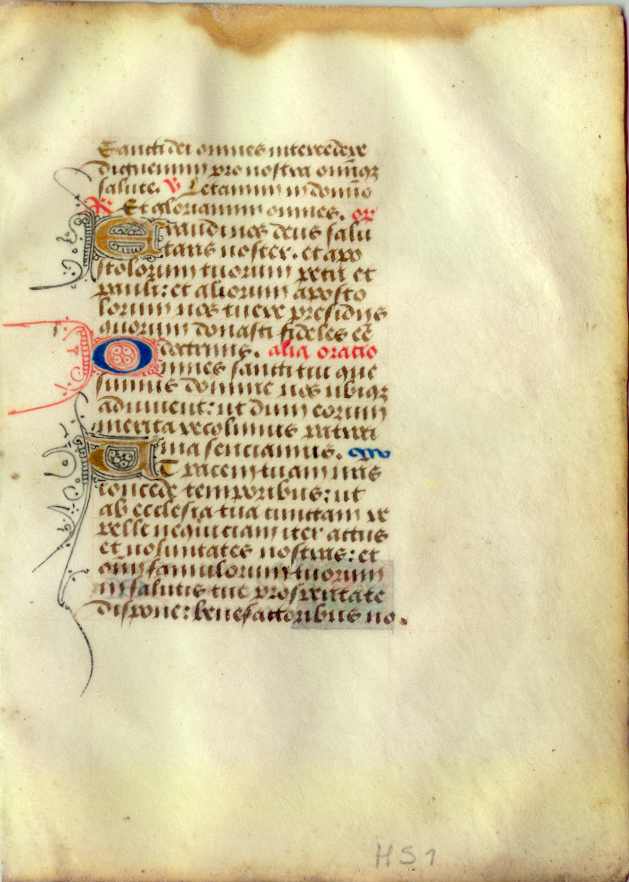 Sancti dei omnes intercedere
dignemini pro nostra omniq̄
salute. v Letamini in domino
R Et gloriamini omnes. or̄
Exaudi nos deus salu
taris noster. et apo
stolorum tuorum petri et
pauli: et aliorum aposto
lorum nos tuere presidiis
quorum donasti fideles eē
doctrinis. alia oratio
Omnes sancti tui que
sumus domine nos ubiq̄
adiuuent: ut dum eorum
merita recolimus patroci
nia senciamus.
Et pacem tuam nris
concede temporibus: ut
ab ecclesia tua cunctam re
pelle nequiciam iter actus
et uoluntates nostras: et
om̄ famulorum tuorum
in salutis tue prosperitate
dispone: benefactoribus no.
HS1